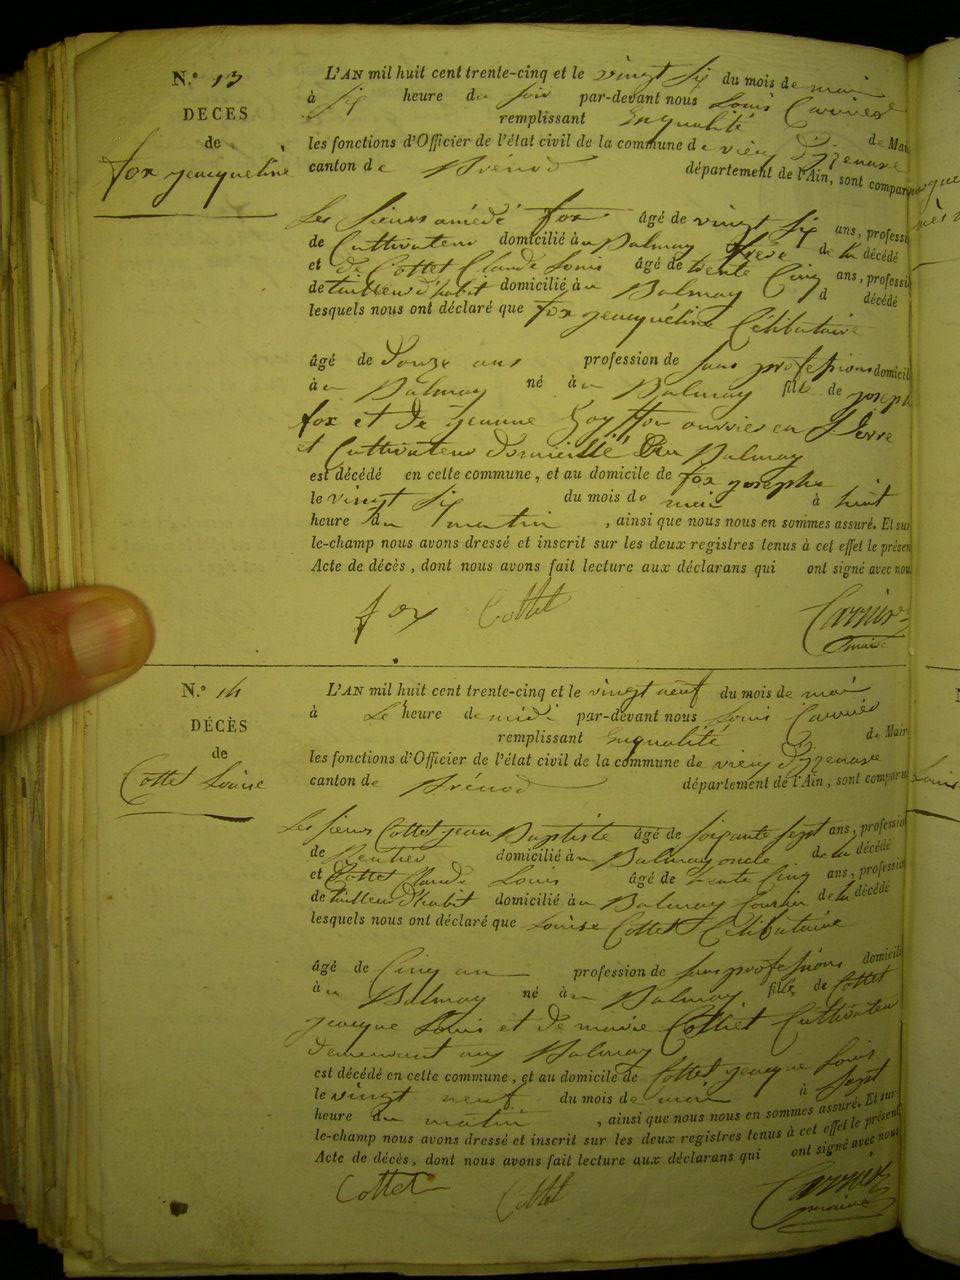 N.° 13
DECES
de
fox jeacqueline
L'AN mil huit cent trente-cinq et le vingt six du mois de mai
à six heure du soir par-devant nous Louis Carrier
remplissant Enqualité de Mai
les fonctions d'Officier de l'état civil de la commune de vieux d'izenave
canton de Brénod département de l'Ain, sont compar
Les sieurs amédé fox âgé de vingt six ans, professi
de Cultivateur domicilié au Balmay frère de la décédé
et de Cottet Claude Louis âgé de trente Cinq ans, professi
de tailleur d'habit domicilié au Balmay d décédé
lesquels nous ont déclaré que fox jeacquéline Célibataire
âgé de Douze ans profession de sans professions domicil
à au Balmay né à au Balmay fille de joseph
fox et de jeanne Goyffon ouvrier en Pierre
et Cultivateur domicillié Au Balmay
est décédé en cette commune, et au domicile de fox josephe
le vingt six du mois de mai à huit
heure du matin , ainsi que nous nous en sommes assuré. Et sur
le-champ nous avons dressé et inscrit sur les deux registres tenus à cet effet le présen
Acte de décès, dont nous avons fait lecture aux déclarans qui ont signé avec nou
fox Cottet Carrier
maire
N.° 14
DÉCÈS
de
Cottet Louise
L'AN mil huit cent trente-cinq et le vingt neuf du mois de mai
à Le heure de midi par-devant nous Louis Carrier
remplissant Enqualité de Mair
les fonctions d'Officier de l'état civil de la commune de vieux d'izenave
canton de Brénod département de l'Ain, sont comparu
Les sieurs Cottet jean Baptiste âgé de soixante sept ans, professio
de Rentier domicilié au Balmay oncle de la décédé
et Cottet Claude Louis âgé de trente Cinq ans, professio
de tailleur d'habit domicilié au Balmay Cousin de la décédé
lesquels nous ont déclaré que Louise Cottet Célibataire
âgé de Cinq an profession de sans professions domicili
à au Balmay né à au Balmay fille de Cottet
jeacque Louis et de marie Cottet Cultivateur
demeurant au Balmay
est décédé en cette commune, et au domicile de Cottet jeacque Louis
le vingt neuf du mois de mai à sept
heure du matin , ainsi que nous nous en sommes assuré. Et sur-
le-champ nous avons dressé et inscrit sur les deux registres tenus à cet effet le présent
Acte de décès, dont nous avons fait lecture aux déclarans qui ont signé avec nous
Cottet Cottet Carrier
maire